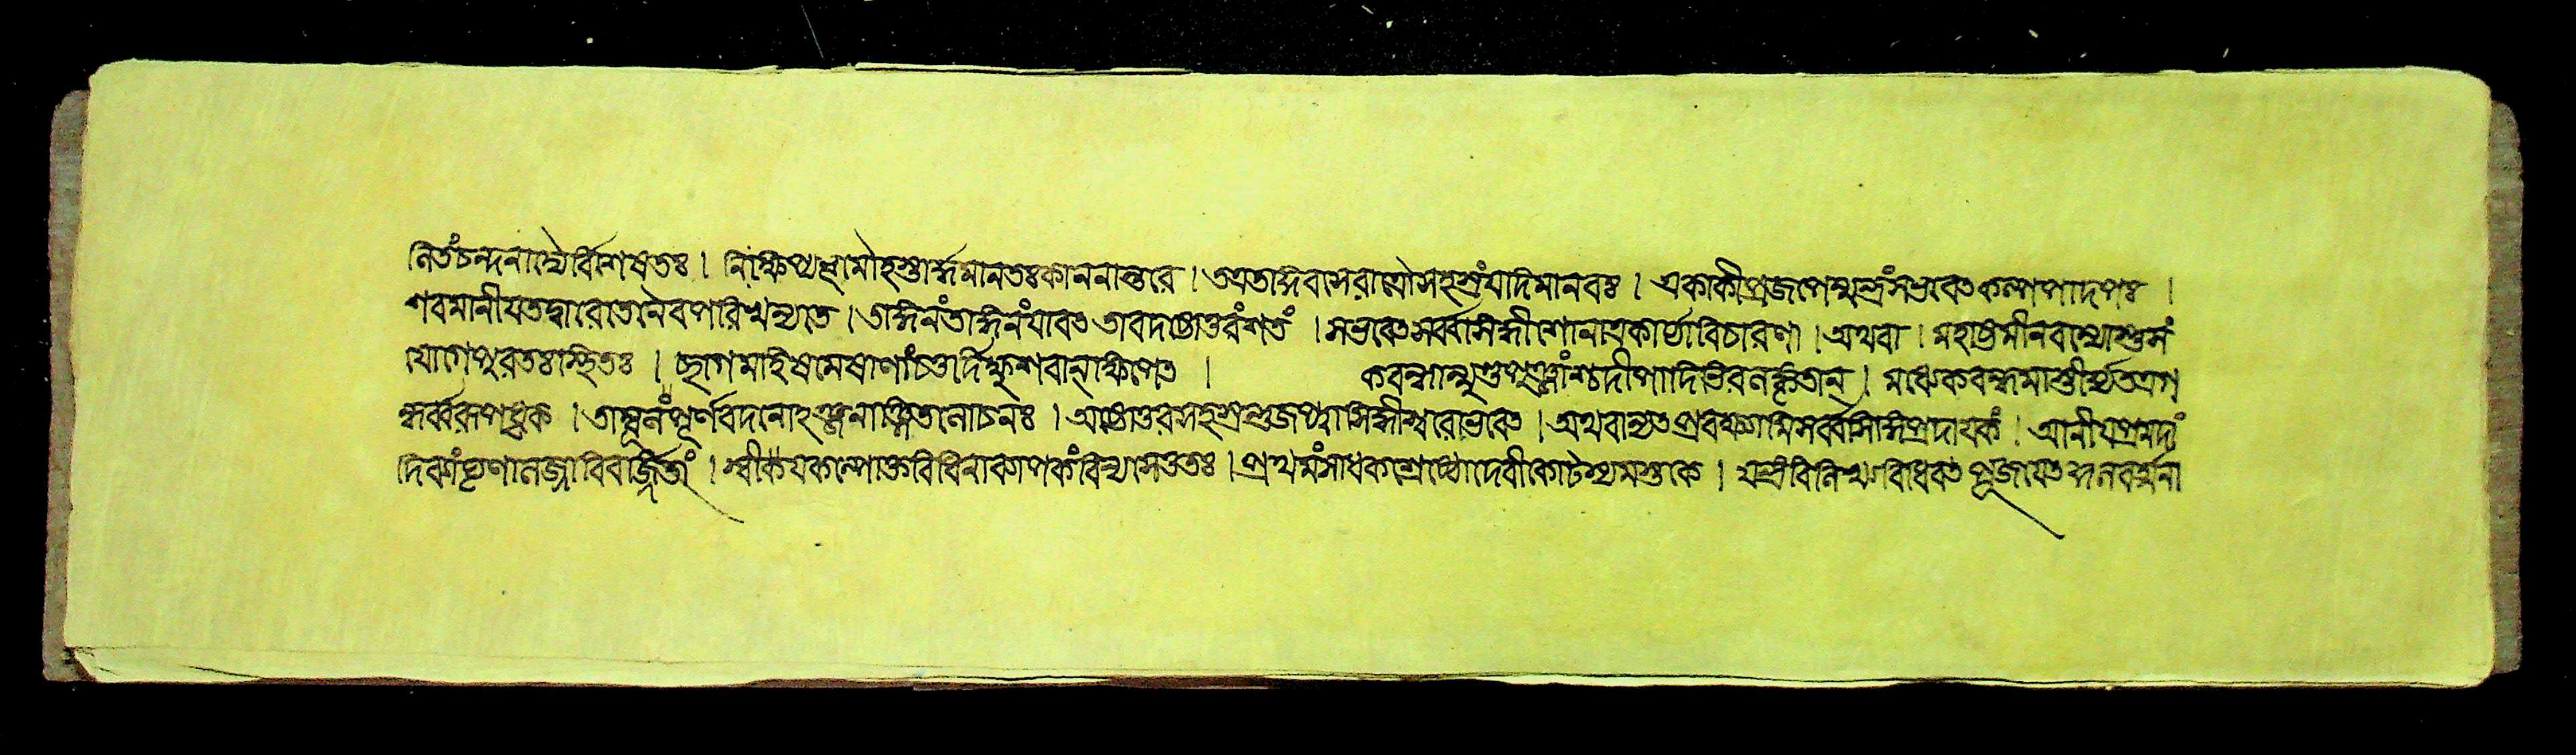 লিতংচন্দনাদ্যৈর্বিশেষতঃ। নিক্ষিপ্যভূমৌহস্তার্দ্ধমানতঃকাননান্তরে। তত্রতদ্দিবসেরাত্রৌসহস্রংযদিমানবঃ। একাকীপ্রজপেন্মন্ত্রংসভবেৎকল্পপাদপঃ।
শবমানীযতদ্দ্বারেতেনৈবপরিখন্যতে। তদ্দিনংতদ্দিনংযাবৎ তাবদষ্টোত্তরংশতং। সভবেৎসর্ব্বসিদ্ধীশোনাত্রকার্য্যাবিচারণা। অথবা। মহাষ্টমীনবম্যোস্তুসং
যোগেপুরতঃস্থিতঃ। ছাগমাহিষমেষাণাংচতুর্দিক্ষুশবান্ক্ষিপেৎ। কবন্ধান্মুণ্ডপুঞ্জাংশ্চদীপাদিভিরলঙ্কৃতান্। মধ্যেকবন্ধমাস্তীর্য্যতত্রগ
ন্ধর্ব্বরূপধৃক্। তাম্বূলংপূর্ণবদনোঽঞ্জনাঞ্জিতলোচনঃ। অষ্টোত্তরসহস্রন্তুজপ্ত্বাসিদ্ধীশ্বরোভবেৎ। অথবান্যৎপ্রবক্ষ্যামিসর্ব্বসিদ্ধিপ্রদাযকং। আনীযপ্রমদাং
দিব্যাংঘৃণালজ্জাবিবর্জ্জিতাং। স্বীকযকল্পোক্তবিধিনাব্যাপকংবিন্যসেত্ততঃ। প্রথমংসাধকশ্রেষ্ঠোদেবীকোটস্থমস্তকে। যন্ত্রংবিলিখ্যবিধিবৎ পূজযেৎ কুলবর্ত্মনা